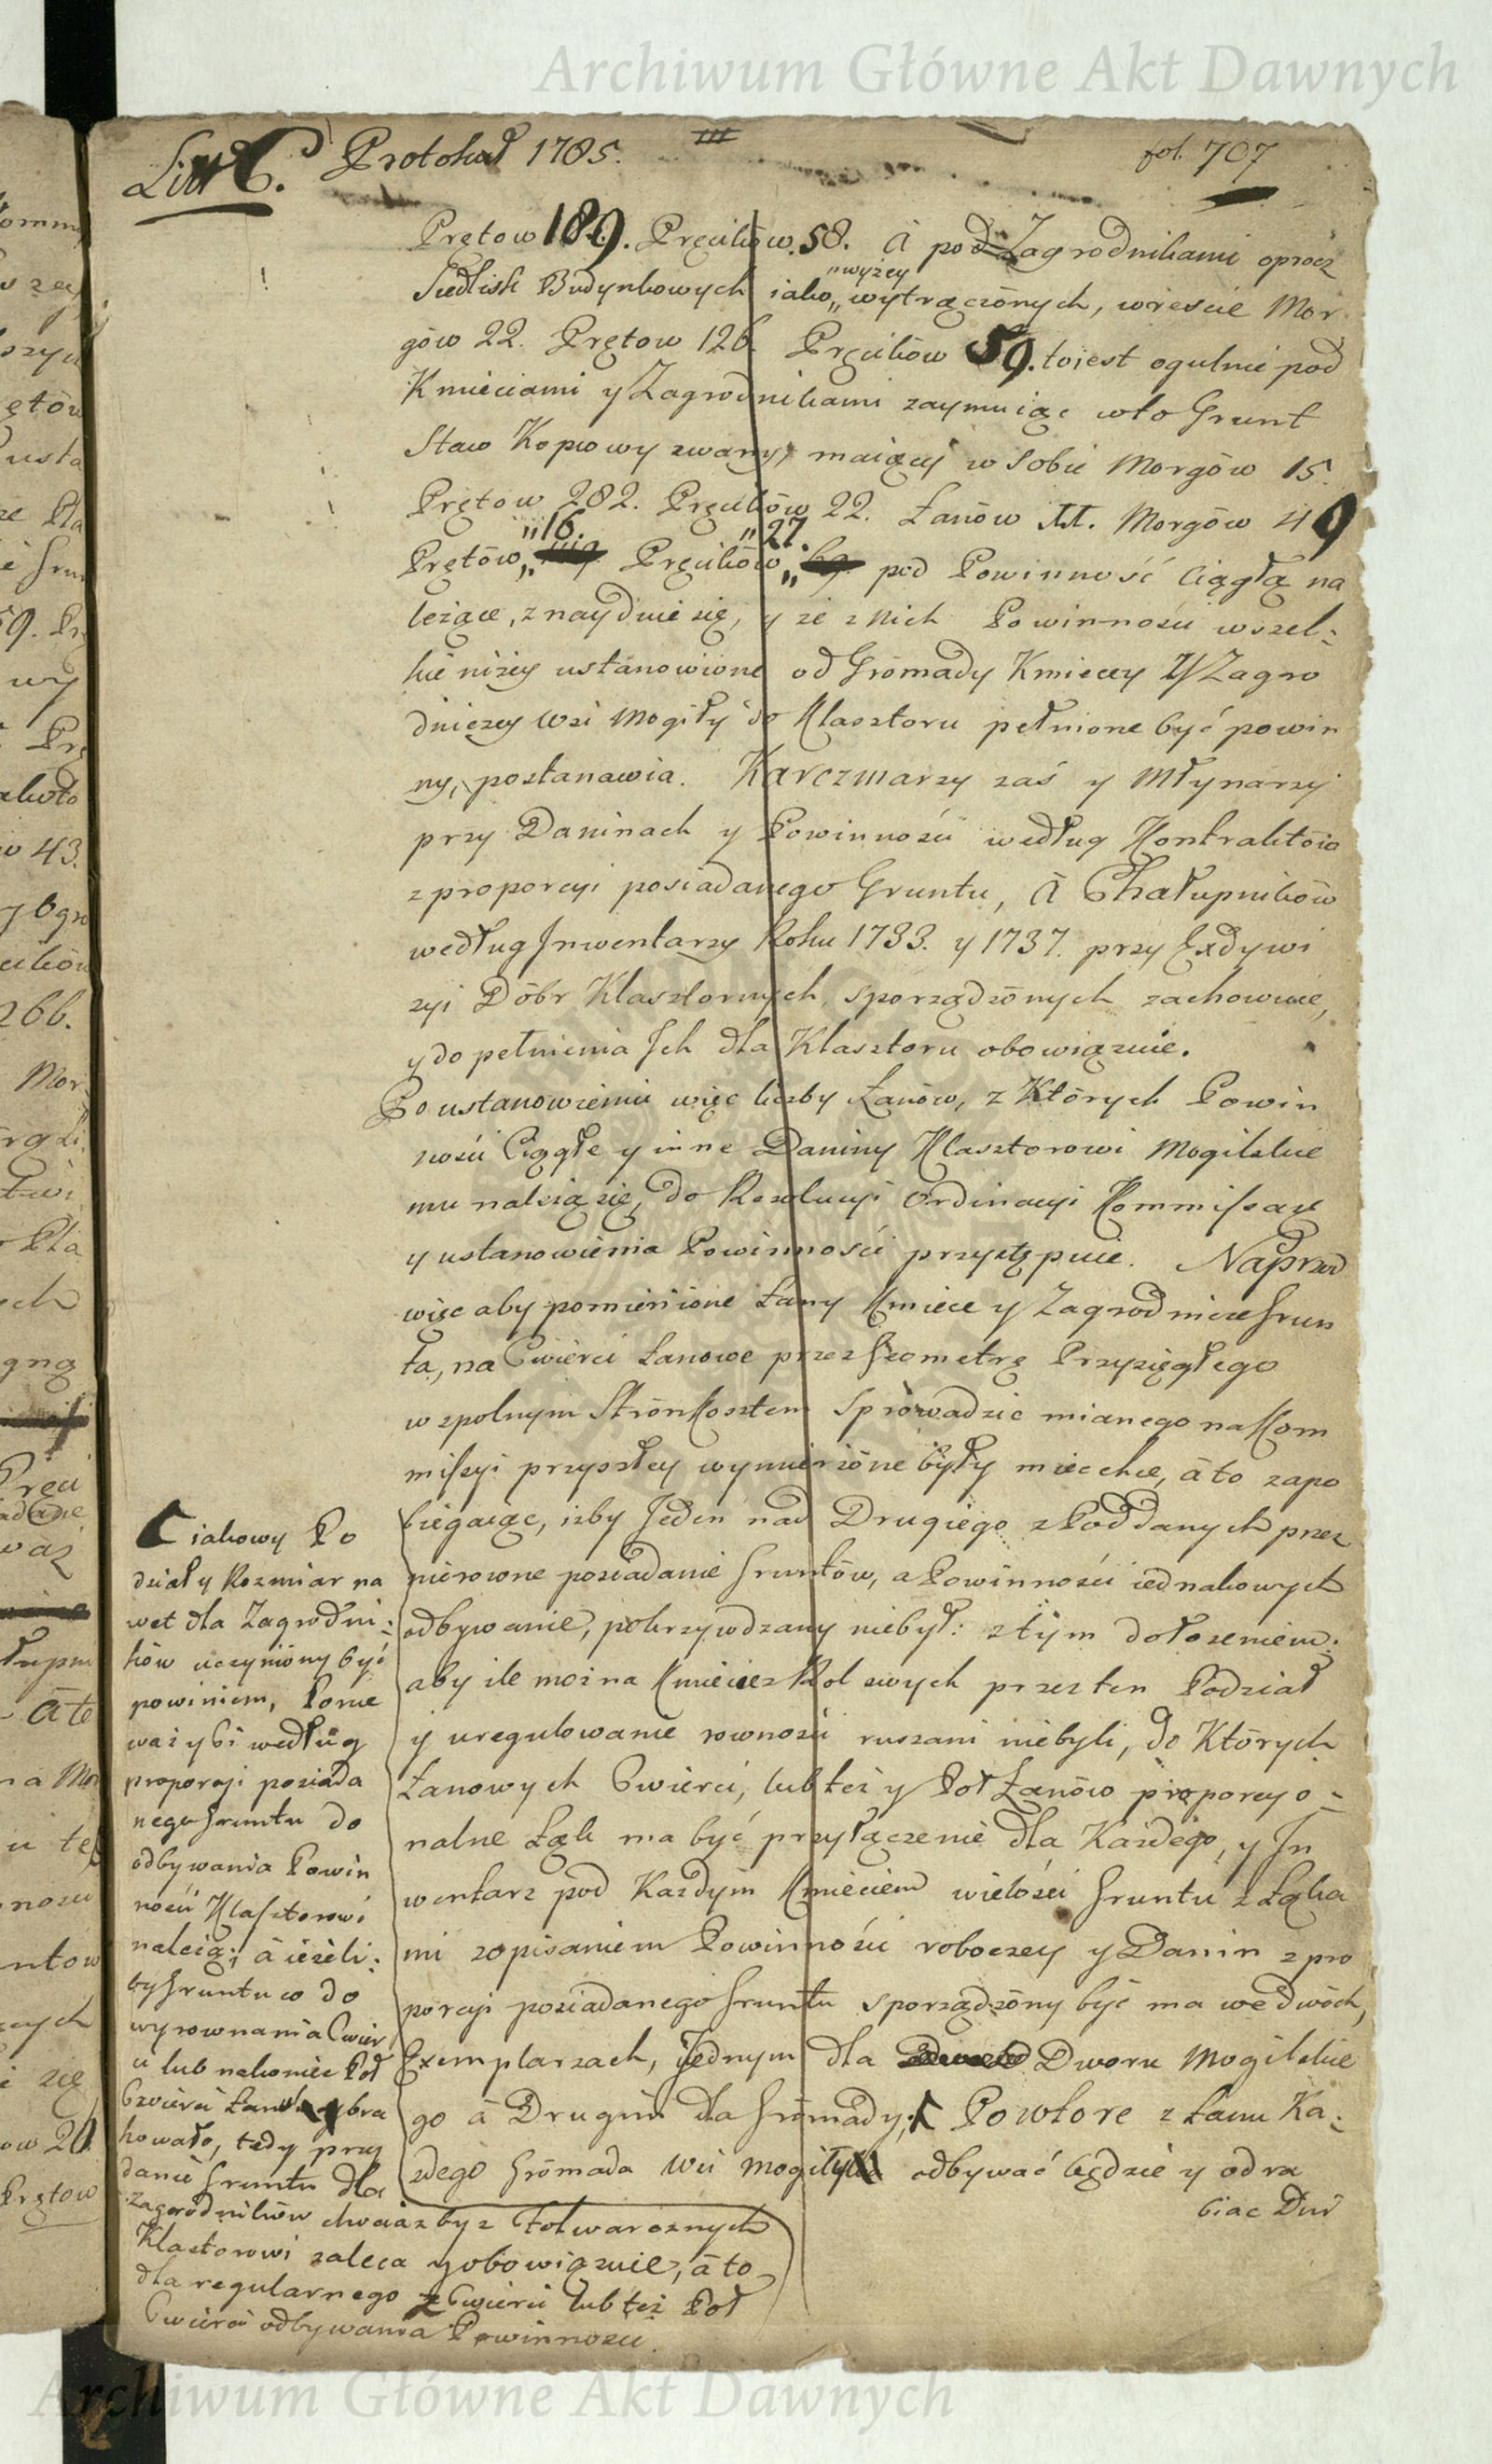 Archiwum Główne Akt Dawnych
Litt C. Protokuł 1785. fol. 707
Prętow 189. Pręcikow. 58. á pod Zagrodnikami oprócz
Siedlisk Budynkowych iako „wyżey wytrączonych, wreście Mor
gów 22. Prętow 126. Pręcików 59. toiest ogulnie pod
Kmieciami y Zagrodnikami zaymuiąc wto Grunt
Staw Kopiowy zwany, maiący w sobie Morgów 15.
Prętow 282. Pręcików 22. Łanów 11. Morgów 49
Prętów „16. Pręcików „27. pod Powinność ciągłą na
leżące, znayduie się, y że z nich Powinności wszel-
kie niżey ustanowione od Gromady Kmiecey y Zagro
dniczey Wsi Mogiły do Klasztoru pełnione być powin
ny, postanawia. Karczmarzy zaś y Młynarzy
przy Daninach y Powinności według Kontraktów
z proporcyi posiadanego Gruntu, á Chałupników
według Inwentarzy Roku 1733. y 1737. przy Exdywi
zyi Dóbr Klasztornych sporządzonych zachowuie,
y do pełnienia Ich dla Klasztoru obowiązuie.
Po ustanowieniu więc liczby Łanów, z Których Powin
ności Ciągłe y inne Daniny Klasztorowi Mogilskie
mu należą się, do Rezolucyi Ordinacyi Kommissarz
y ustanowienia Powinności przystępuie. Naprzod
więc aby pomienione Łany Kmiece y Zagrodnicze Grun
ta, na Cwierci Łanowe przez Geometrę Przysięgłego
wspolnym Stron Kosztem sprowadzić mianego na Kom
missyi przyszłey wymierzone były mieć chce, á to zapo
biegaiąc, iżby Jeden nad Drugiego z Poddanych przez
nierowne posiadanie Gruntów, a Powinności iednakowych
odbywanie, pokrzywdzany niebył: z tym dołożeniem:
aby ile można Kmiecie z Rol swych przez ten Podział
y uregulowanie rowności ruszani niebyli, do Których
Łanowych Cwierci, lub też y Poł Łanów proporcyo-
nalne Łąk ma być przyłączenie dla Każdego, y In
wentarz pod Każdym Kmieciem wielości Gruntu z Łąka
mi z opisaniem Powinności roboczey y Danin z pro
porcyi posiadanego Gruntu sporządzony być ma we dwóch,
Exemplarzach, Jednym dla Dworu Mogilskie
go á Drugim dla Gromady. Powtore z Łanu Ka-
żdego Gromada Wsi Mogiły odbywać będzie y odra
biac Dni
Ciakowy Po
dział y Rozmiar na
wet dla Zagrodni-
ków uczyniony być
powinien, Ponie
waż y Ci według
proporcyi posiada
nego Gruntu do
odbywania Powin
ności Klasztorowi
należą; á ieżeli-
by Gruntu co do
wyrownania Cwier
ci lub nakoniec Poł
Cwierci Łanu bra
kowało, tedy przy
danie Gruntu dla
Zagrodników chociażby z Folwarcznych
Klasztorowi zaleca y obowiązuie, á to
dla regularnego z Cwierci lub też Poł
Cwierci odbywania Powinności.
Archiwum Główne Akt Dawnych